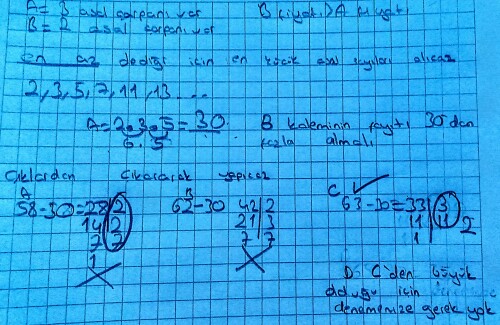 A = 3 asal çarpanı var B fiyatı > A fiyatı
B = 2 asal çarpanı var
en az dediği için en küçük asal sayıları alıcaz
2, 3, 5, 7, 11, 13 ....
A = 2.3.5 = 30 B kaleminin fiyatı 30'dan
6.5 fazla olmalı
Şıklardan çıkararak yapıcaz
A B C
58-30=28|2 62-30 42|2 63-30=33|3
14|2 21|3 11|11 2
7|7 7|7 1
1
D C'den büyük
olduğu için
denememize gerek yok